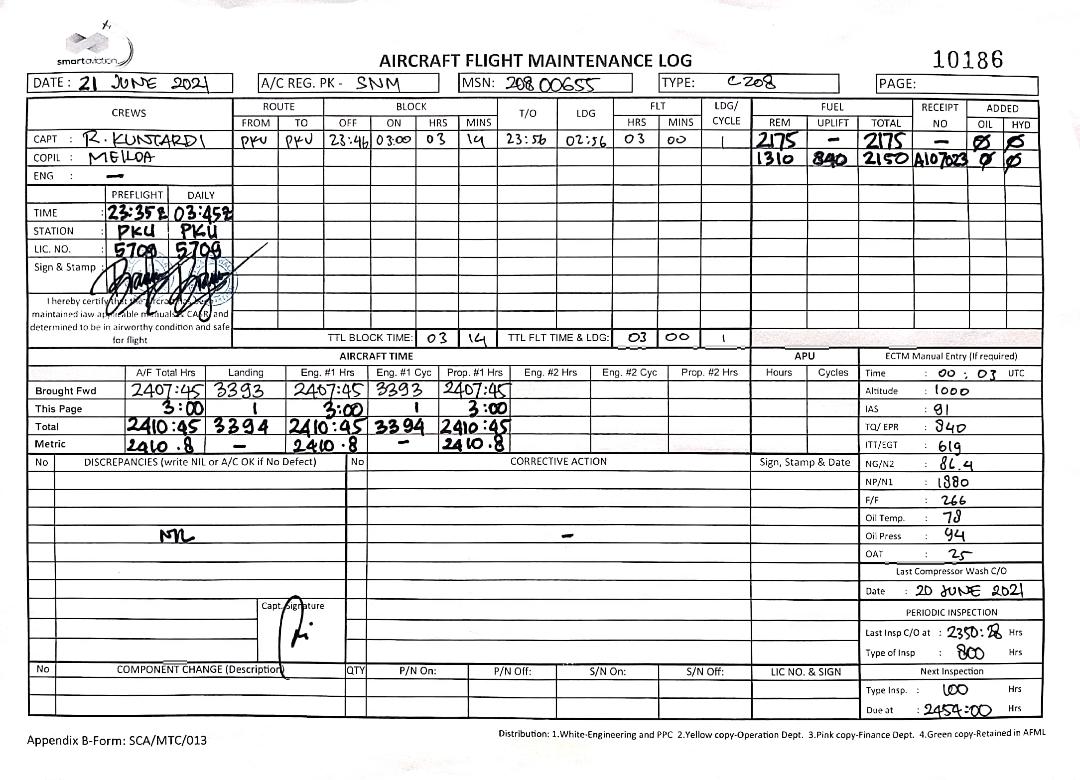 smartaviation
AIRCRAFT FLIGHT MAINTENANCE LOG
10186
DATE : 21 JUNE 2021 A/C REG. PK - SNM MSN: 208 00655 TYPE: C208 PAGE:
CREWS ROUTE BLOCK T/O LDG FLT LDG/ CYCLE FUEL RECEIPT NO ADDED
FROM TO OFF ON HRS MINS HRS MINS REM UPLIFT TOTAL OIL HYD
CAPT : R. KUNTARDI PKU PKU 23:46 03:00 03 14 23:56 02:56 03 00 1 2175 - 2175 - Ø Ø
COPIL : 1310 840 2150 A107023 Ø Ø
ENG : -
PREFLIGHT DAILY
TIME : 23:35z 03:45z
STATION : PKU PKU
LIC. NO. : 5709 5709
Sign & Stamp :
I hereby certify that the aircraft has been
maintained iaw applicable manuals & CASR and
determined to be in airworthy condition and safe
for flight
TTL BLOCK TIME: 03 14 TTL FLT TIME & LDG: 03 00 1
AIRCRAFT TIME APU ECTM Manual Entry (If required)
A/F Total Hrs Landing Eng. #1 Hrs Eng. #1 Cyc Prop. #1 Hrs Eng. #2 Hrs Eng. #2 Cyc Prop. #2 Hrs Hours Cycles Time : 00 : 03 UTC
Brought Fwd 2407:45 3393 2407:45 3393 2407:45 Altitude : 1000
This Page 3:00 1 3:00 1 3:00 IAS : 91
Total 2410:45 3394 2410:45 3394 2410:45 TQ/ EPR : 940
Metric 2410.8 - 2410.8 - 2410.8 ITT/EGT : 619
No DISCREPANCIES (write NIL or A/C OK if No Defect) No CORRECTIVE ACTION Sign, Stamp & Date NG/N2 : 86.4
NP/N1 : 1880
F/F : 266
Oil Temp. : 78
NIL - Oil Press : 94
OAT : 25
Last Compressor Wash C/O
Date : 20 JUNE 2021
Capt. Signature
PERIODIC INSPECTION
Last Insp C/O at : 2350:28 Hrs
Type of Insp : 800 Hrs
No COMPONENT CHANGE (Description) QTY P/N On: P/N Off: S/N On: S/N Off: LIC NO. & SIGN Next Inspection
Type Insp. : 100 Hrs
Due at : 2454:00 Hrs
Appendix B-Form: SCA/MTC/013
Distribution: 1.White-Engineering and PPC 2.Yellow copy-Operation Dept. 3.Pink copy-Finance Dept. 4.Green copy-Retained in AFML